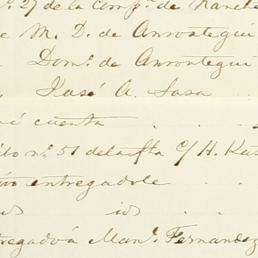 nº. 27 de la comp.ª de Ranch
e M. D. de Anrrotegui
Dom.º de Anrrotegui
José A. Sasa
mi cuenta
do nº 51 de la fta C/ H. Kus
entregadole
id
tregado á Man.l Fernandez